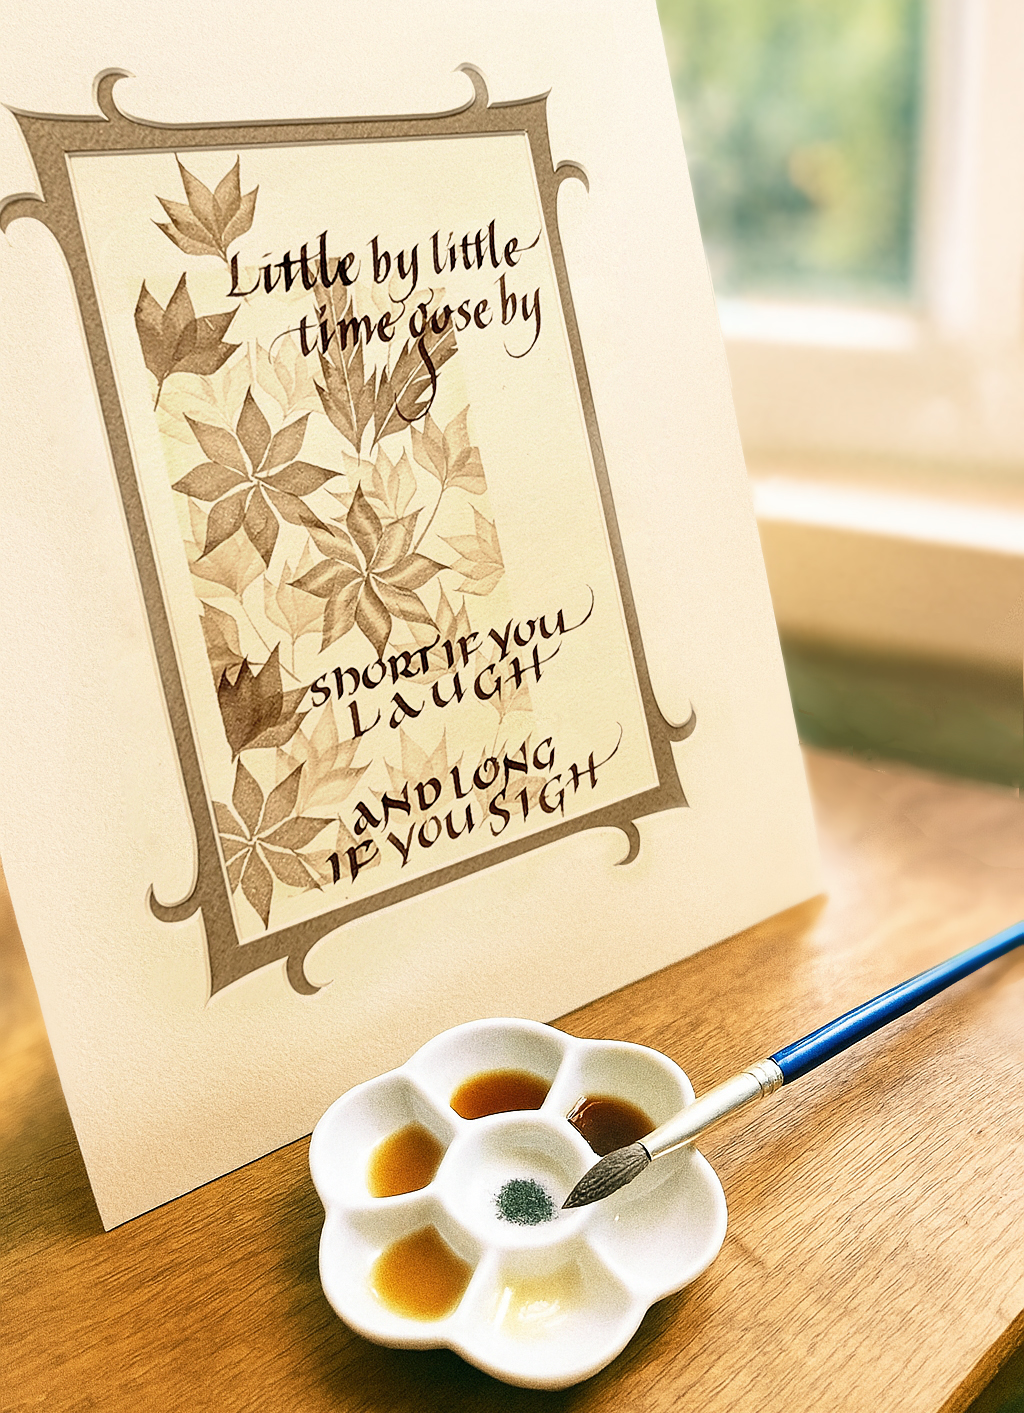 Little by little
time gose by
SHORT IF YOU
LAUGH
AND LONG
IF YOU SIGH